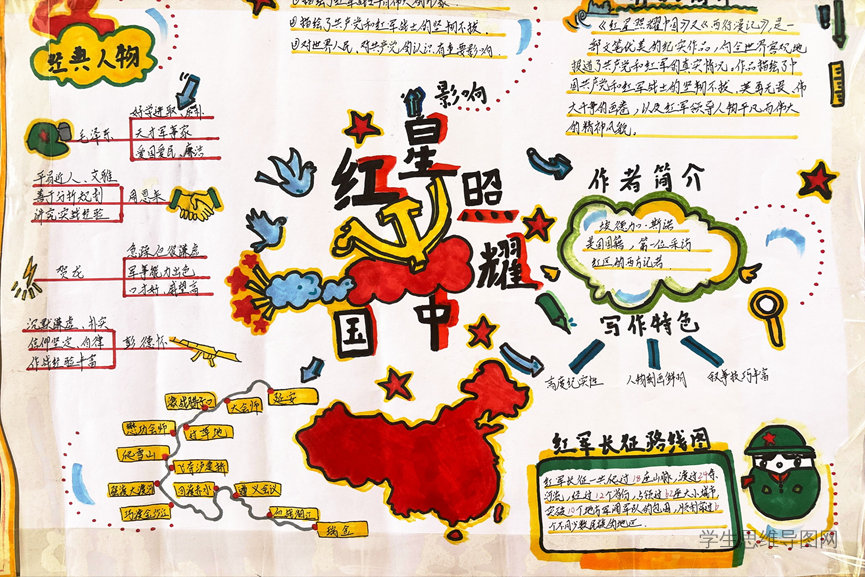 ①描绘了共产党和红军战士的坚韧不拔
②对世界人民,对共产党的认识有重要影响
影响
《红星照耀中国》又《西行漫记》,是一
部文笔优美的纪实作品,向全世界客观地
报道了共产党和红军的真实情况。作品描绘了中
国共产党和红军战士的坚韧不拔、英勇无畏、伟
大斗争的画卷,以及红军领导人物平凡而伟大
的精神风貌。
经典人物
毛泽东
天才军事家
爱国爱民、廉洁
平易近人、文雅
善于分析、规划
讲究实践经验
周恩来
贺龙
军事能力出色
口才好、威望高
沉默谦虚、扎实
信仰坚定、自律
作战经验丰富
彭德怀
红星照耀中国
作者简介
埃德加·斯诺
美国国籍,第一位采访
红区的西方记者.
写作特色
高度纪实性
人物刻画鲜明
叙事技巧丰富
延安
大会师
激战腊子口
懋功会师
过草地
爬雪山
飞夺泸定桥
强渡大渡河
四渡赤水
遵义会议
巧渡金沙江
血战湘江
瑞金
红军长征路线图
红军长征一共爬过18座山脉,渡过24条
河流,经过12个省份,占领过62座大小城市,
突破10个地方军阀军队的包围,胜利穿过6
个不同少数民族的地区.
学生思维导图网